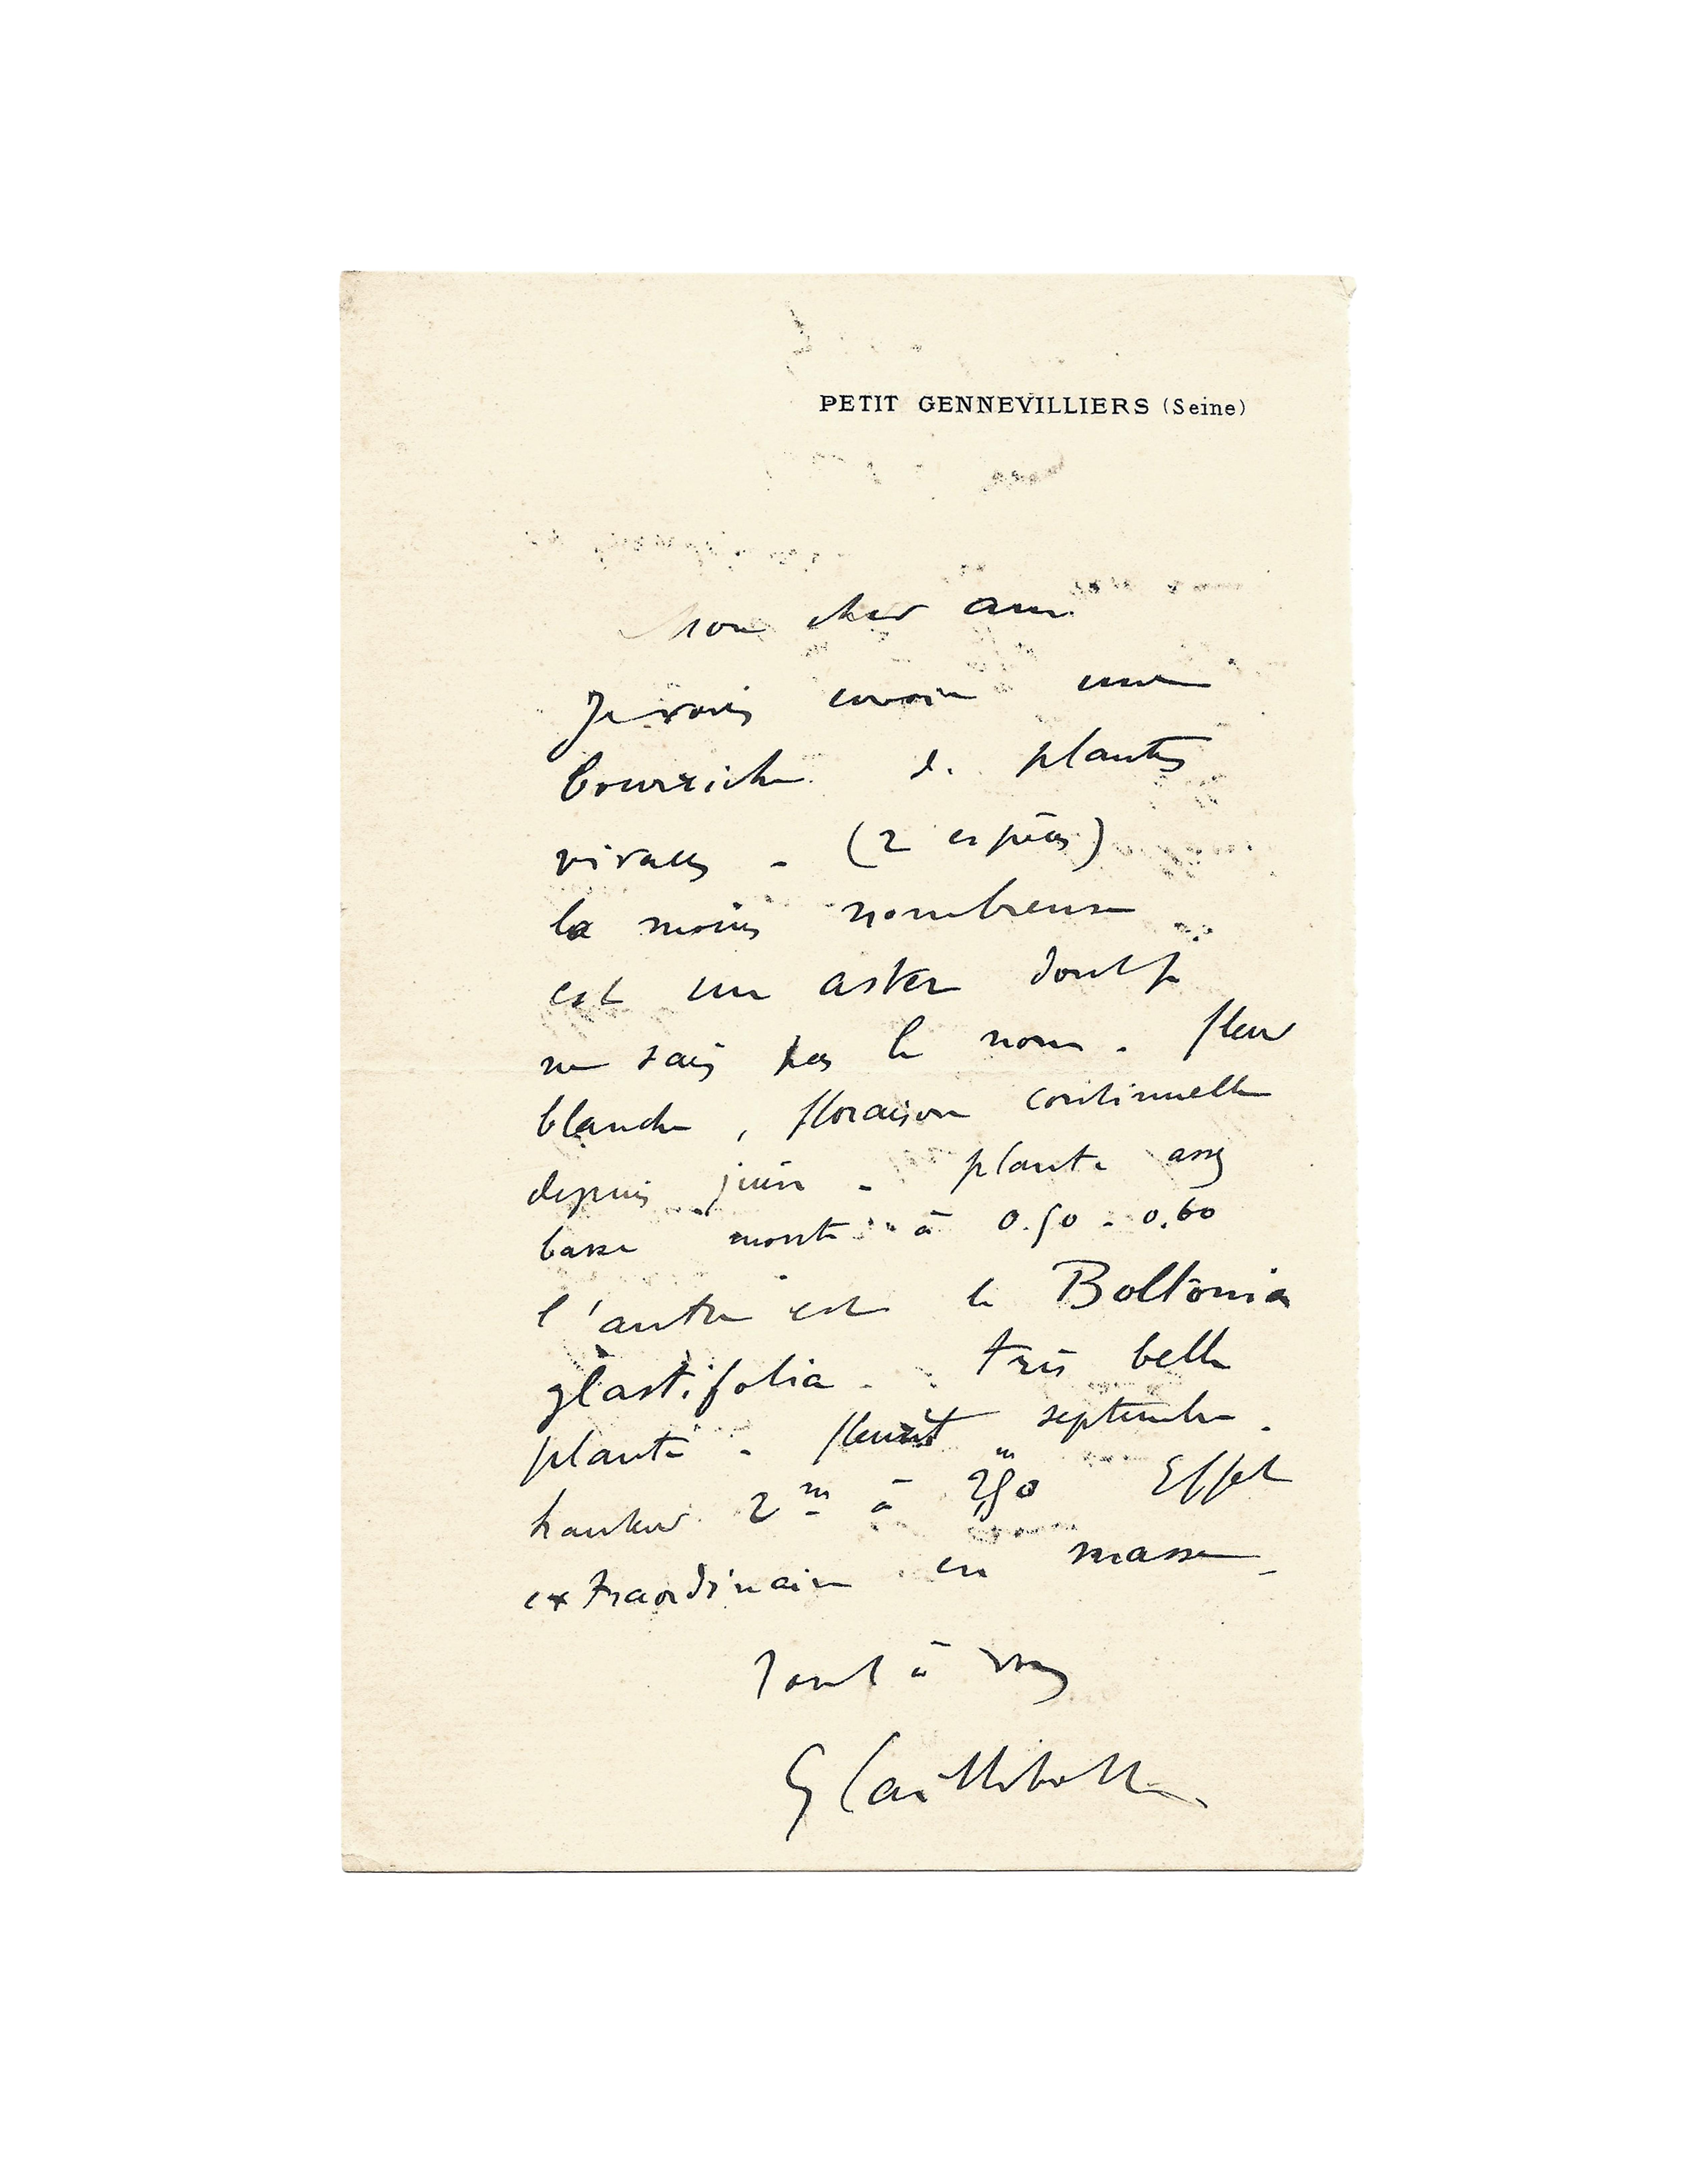 PETIT GENNEVILLIERS (Seine)
Mon cher ami
Je vous envoie une
bourriche de plantes
vivaces - (2 espèces)
la moins nombreuse
est un aster dont je
ne sais pas le nom - fleur
blanche, floraison continuelle
depuis juin - plante assez
basse monte à 0.50 - 0.60
l'autre est le Boltonia
glastifolia - très belle
plante - fleurit septembre -
hauteur 2m à 2m,50 Effet
extraordinaire en masse -
Tout à vous
G Caillebotte